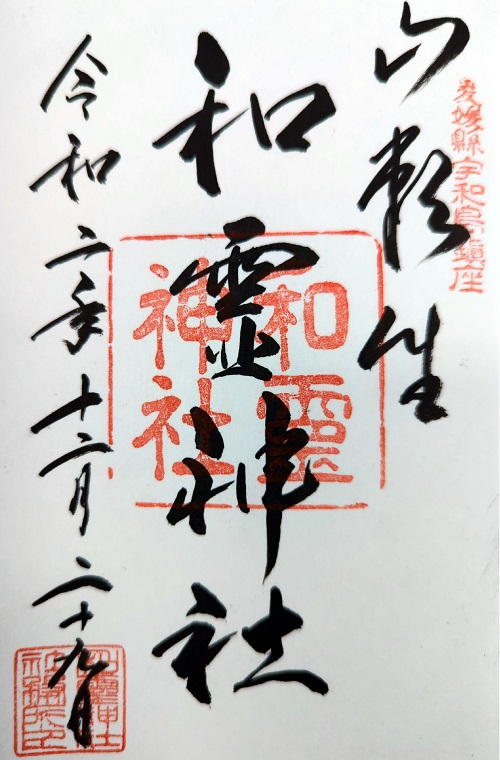 愛媛縣宇和島鎮座
和霊神社
和霊
神社
令和二年十二月二十九日
和靈神社
社務所之印